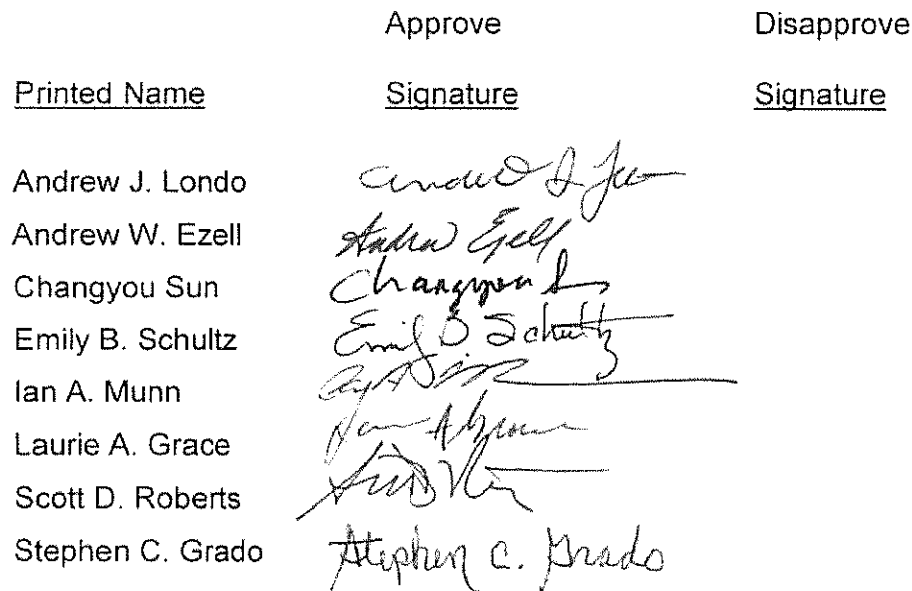 Approve Disapprove
Printed Name Signature Signature
Andrew J. Londo
Andrew W. Ezell Andrew Ezell
Changyou Sun Changyou
Emily B. Schultz Emily B Schultz
Ian A. Munn
Laurie A. Grace
Scott D. Roberts
Stephen C. Grado Stephen C. Grado